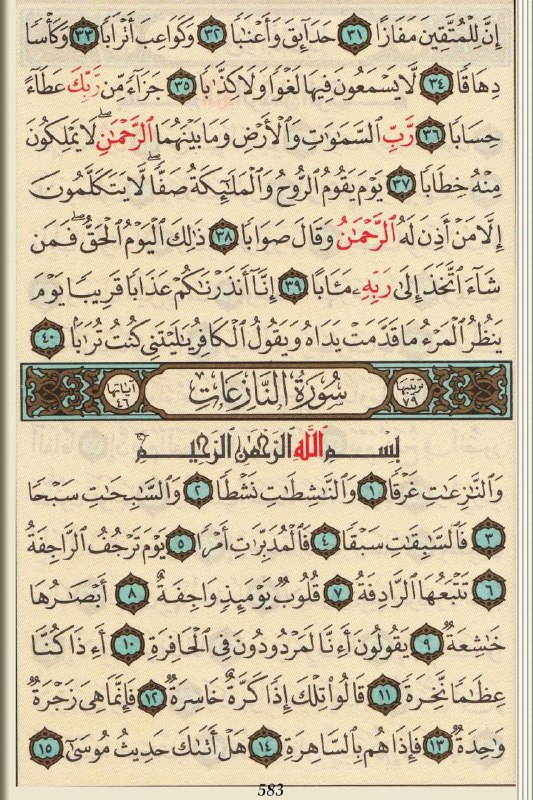 إِنَّ لِلْمُتَّقِينَ مَفَازًا ٣١ حَدَآئِقَ وَأَعْنَـٰبًا ٣٢ وَكَوَاعِبَ أَتْرَابًا ٣٣ وَكَأْسًا
دِهَاقًا ٣٤ لَّا يَسْمَعُونَ فِيهَا لَغْوًا وَلَا كِذَّٰبًا ٣٥ جَزَآءً مِّن رَّبِّكَ عَطَآءً
حِسَابًا ٣٦ رَّبِّ ٱلسَّمَـٰوَٰتِ وَٱلْأَرْضِ وَمَا بَيْنَهُمَا ٱلرَّحْمَـٰنِ ۖ لَا يَمْلِكُونَ
مِنْهُ خِطَابًا ٣٧ يَوْمَ يَقُومُ ٱلرُّوحُ وَٱلْمَلَـٰٓئِكَةُ صَفًّا ۖ لَّا يَتَكَلَّمُونَ
إِلَّا مَنْ أَذِنَ لَهُ ٱلرَّحْمَـٰنُ وَقَالَ صَوَابًا ٣٨ ذَٰلِكَ ٱلْيَوْمُ ٱلْحَقُّ ۖ فَمَن
شَآءَ ٱتَّخَذَ إِلَىٰ رَبِّهِۦ مَـَٔابًا ٣٩ إِنَّآ أَنذَرْنَـٰكُمْ عَذَابًا قَرِيبًا يَوْمَ
يَنظُرُ ٱلْمَرْءُ مَا قَدَّمَتْ يَدَاهُ وَيَقُولُ ٱلْكَافِرُ يَـٰلَيْتَنِى كُنتُ تُرَٰبًا ٤٠
ترتيبها ٧٩ سُورَةُ النَّازِعَاتِ آياتها ٤٦
بِسْمِ ٱللَّهِ ٱلرَّحْمَـٰنِ ٱلرَّحِيمِ
وَٱلنَّـٰزِعَـٰتِ غَرْقًا ١ وَٱلنَّـٰشِطَـٰتِ نَشْطًا ٢ وَٱلسَّـٰبِحَـٰتِ سَبْحًا
٣ فَٱلسَّـٰبِقَـٰتِ سَبْقًا ٤ فَٱلْمُدَبِّرَٰتِ أَمْرًا ٥ يَوْمَ تَرْجُفُ ٱلرَّاجِفَةُ
٦ تَتْبَعُهَا ٱلرَّادِفَةُ ٧ قُلُوبٌ يَوْمَئِذٍ وَاجِفَةٌ ٨ أَبْصَـٰرُهَا
خَـٰشِعَةٌ ٩ يَقُولُونَ أَءِنَّا لَمَرْدُودُونَ فِى ٱلْحَافِرَةِ ١٠ أَءِذَا كُنَّا
عِظَـٰمًا نَّخِرَةً ١١ قَالُوا۟ تِلْكَ إِذًا كَرَّةٌ خَاسِرَةٌ ١٢ فَإِنَّمَا هِىَ زَجْرَةٌ
وَٰحِدَةٌ ١٣ فَإِذَا هُم بِٱلسَّاهِرَةِ ١٤ هَلْ أَتَىٰكَ حَدِيثُ مُوسَىٰٓ ١٥
583